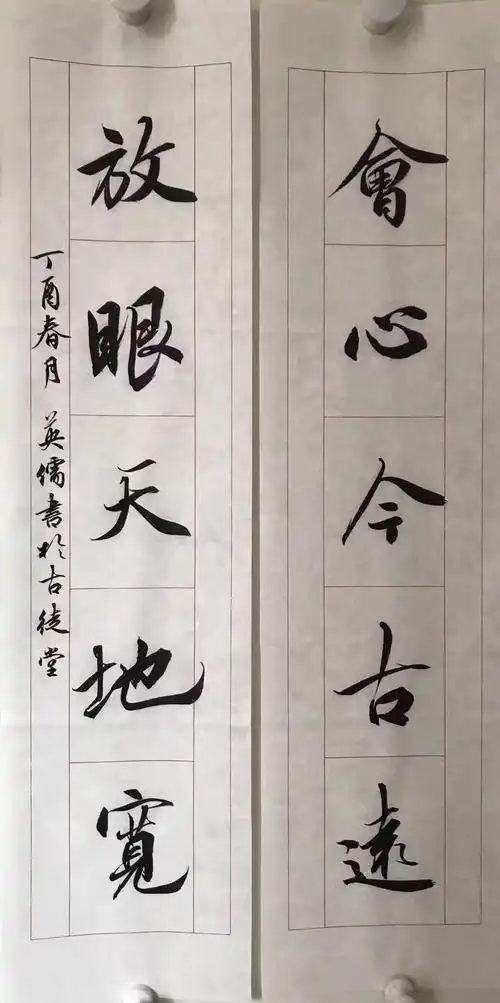 會心今古遠
放眼天地寬
丁酉春月 英儒書於古徒堂